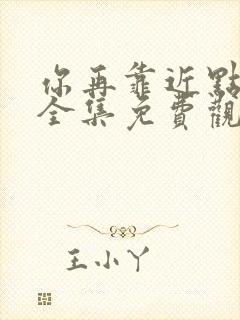 你再靠近點
全集免費觀
王小丫